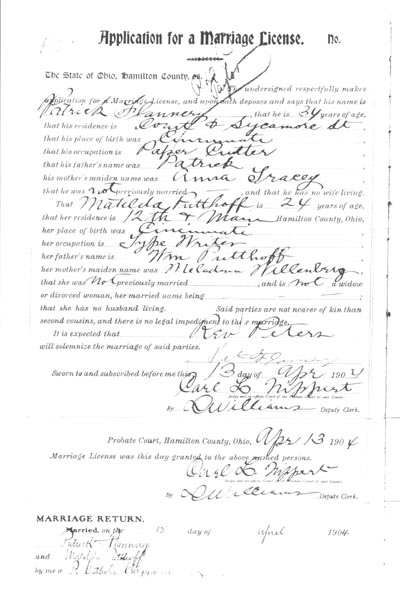 Application for a Marriage License. No.
The State of Ohio, Hamilton County, ss.
The undersigned respectfully makes
application for a Marriage License, and upon oath deposes and says that his name is
Patrick Flannery, that he is 34 years of age,
that his residence is Court & Sycamore St
that his place of birth was Cincinnati
that his occupation is Paper Cutter
that his father's name was Patrick
his mother's maiden name was Anna Tracey
that he was not previously married, and that he has no wife living.
That Matilda Putthoff is 24 years of age,
that her residence is 12th & Main Hamilton County, Ohio,
her place of birth was Cincinnati
her occupation is Type Writer
her father's name is Wm Putthoff
her mother's maiden name was Willenberg
that she was Not previously married, and is not a widow
or divorced woman, her married name being
that she has no husband living. Said parties are not nearer of kin than
second cousins, and there is no legal impediment to their marriage.
It is expected that Rev Peters
will solemnize the marriage of said parties.
Pat Flannery
Sworn to and subscribed before me this 13 day of Apr 1904
Carl L Nippert
By L Williams Deputy Clerk.
Probate Court, Hamilton County, Ohio, Apr 13 1904
Marriage License was this day granted to the above named persons.
Carl L Nippert
By L Williams Deputy Clerk.
MARRIAGE RETURN.
Married, on the 15 day of April 1904
Patrick Flannery
and Matilda Putthoff
by me a R. Catholic Clergyman